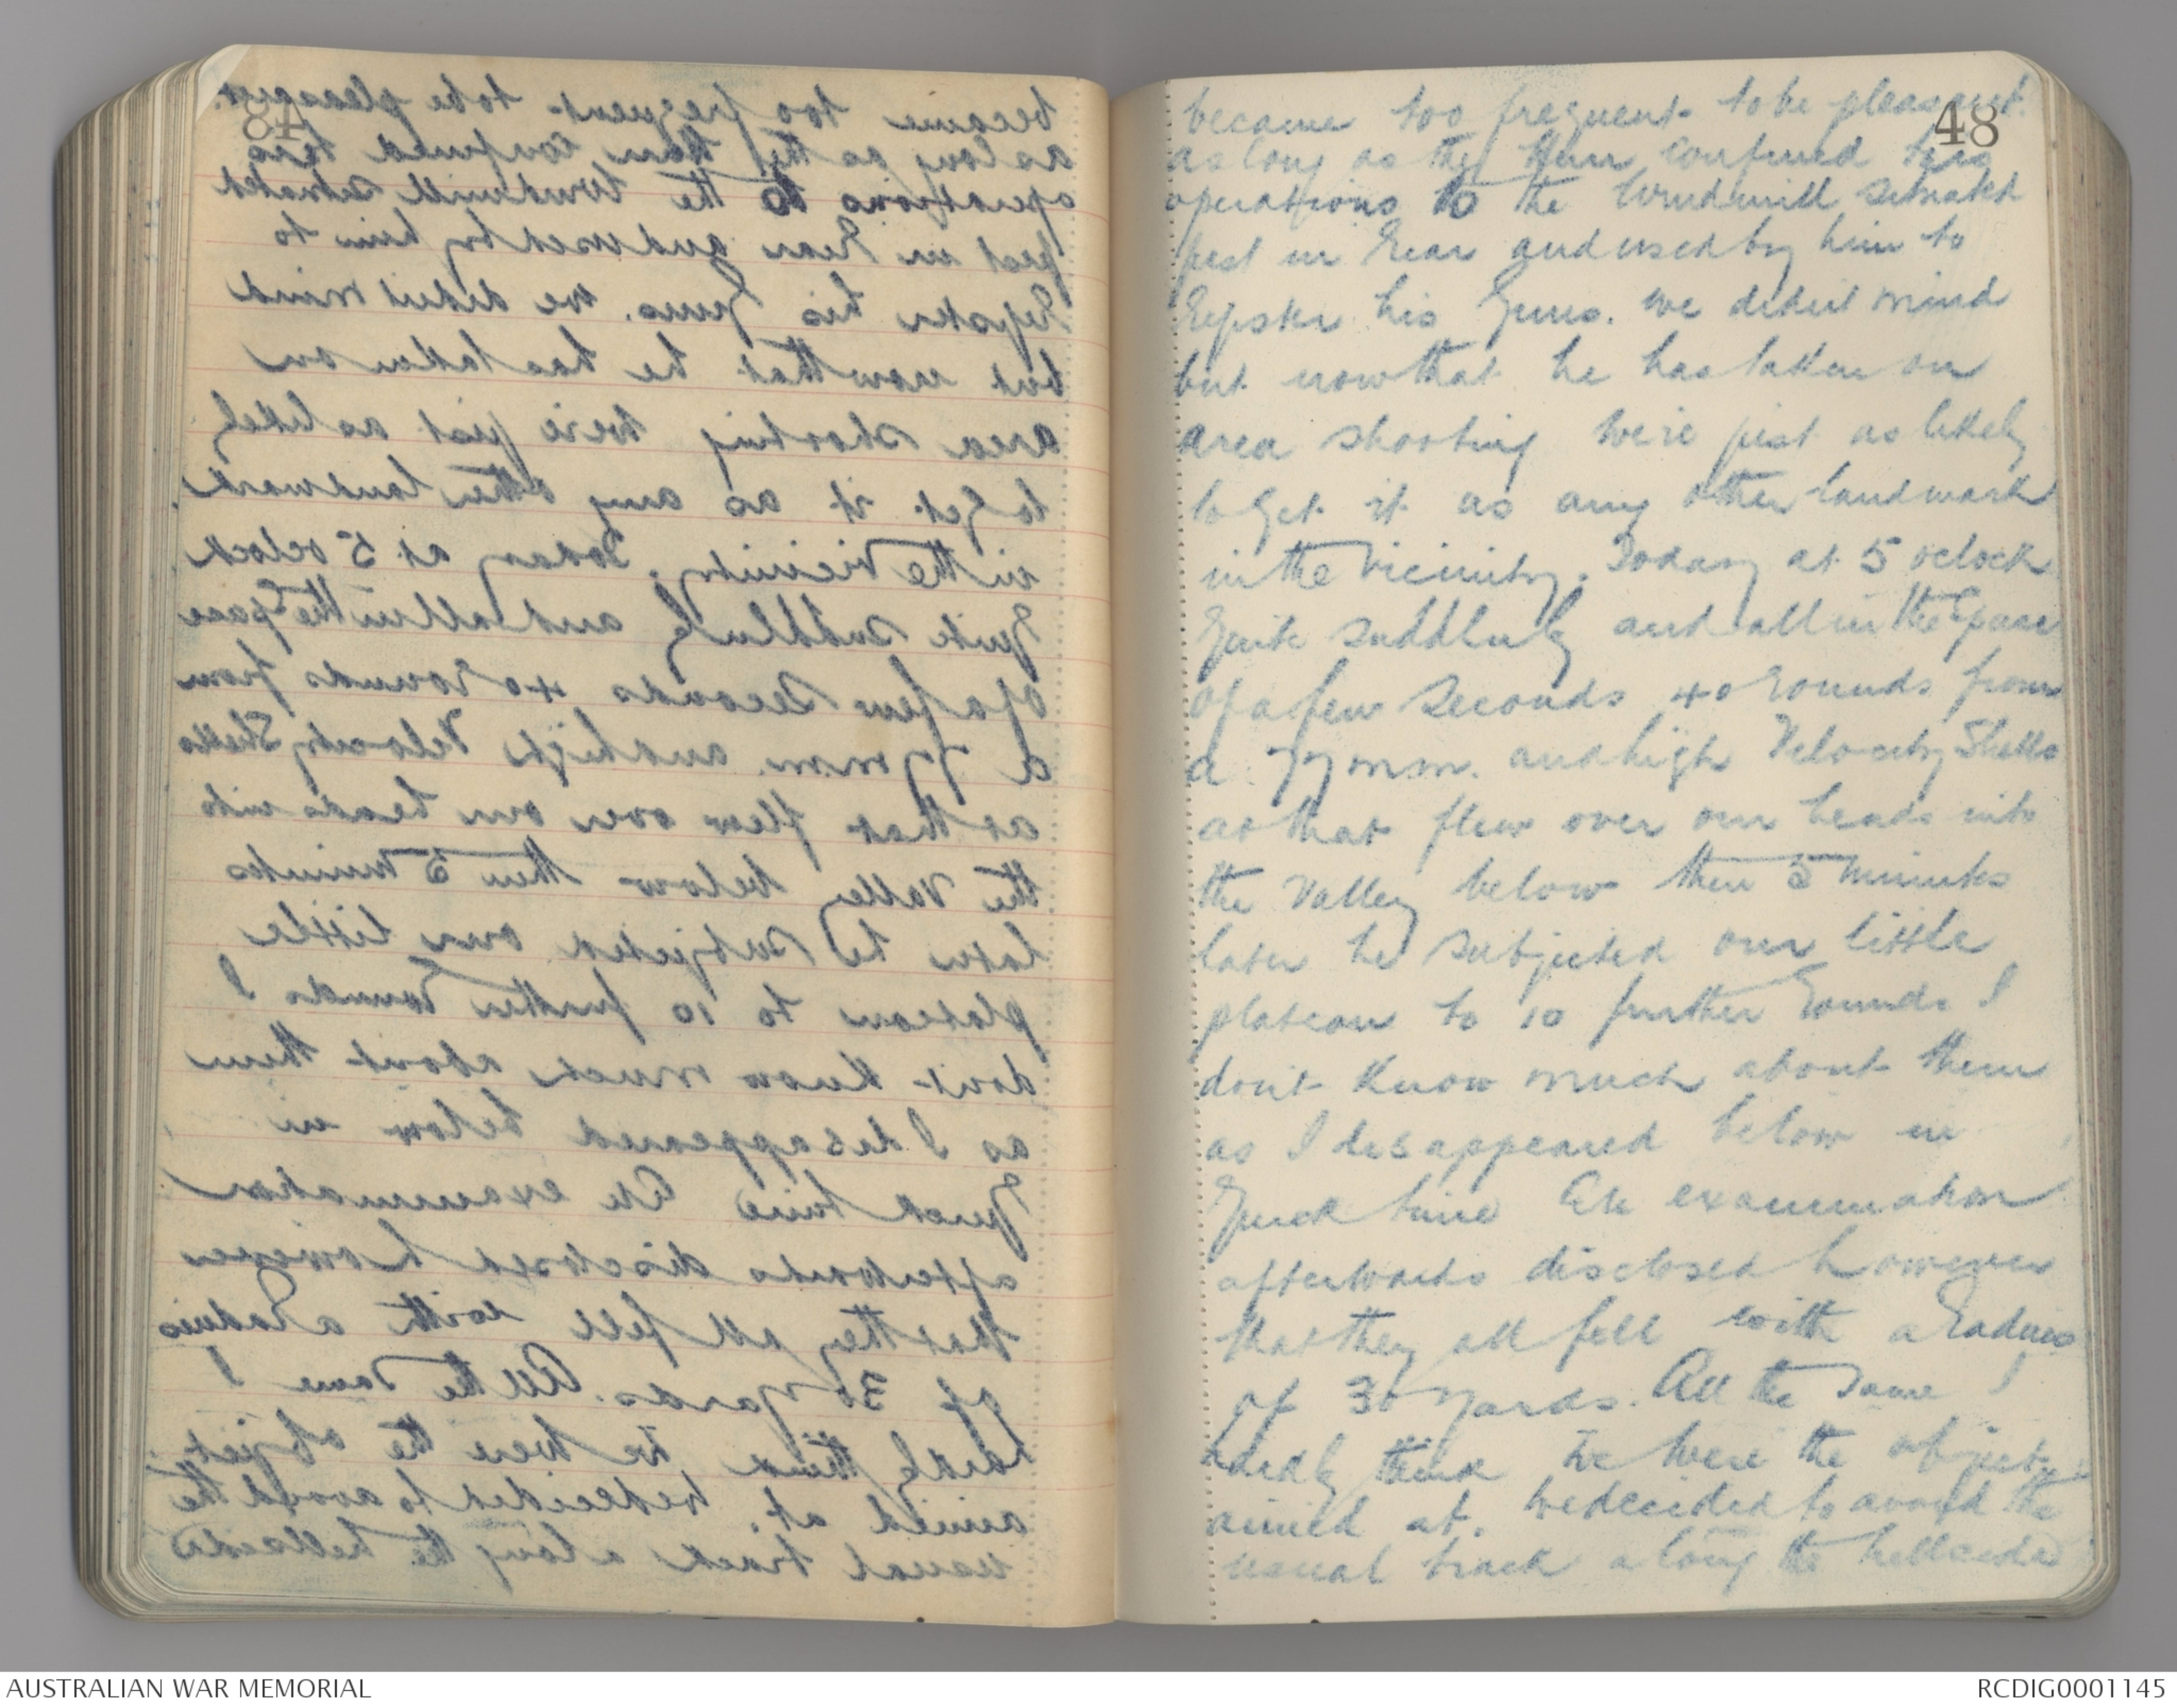 48
became too frequent to be pleasant.
as long as the Hun confined his
operations to the Windmill situated
just in rear and used by him to
Register his Guns. we didn't mind
but now that he has taken on
area shooting we're just as likely
to get it as any other landmark
in the vicinity. Today at 5 oclock
Quite suddenly and all in the space
of a few seconds 40 rounds from
a 77 mm. and high Velocity Shells
at that flew over our heads into
the Valley below then 5 minutes
later he subjected our little
plateau to 10 further rounds I
don't know much about them
as I disappeared below in
Quick time An examination
afterwards disclosed however
that they all fell with a radius
of 30 yards. All the same I
hardly think we were the object
aimed at. We decided to avoid the
usual track along the hillside
AUSTRALIAN WAR MEMORIAL
RCDIG0001145